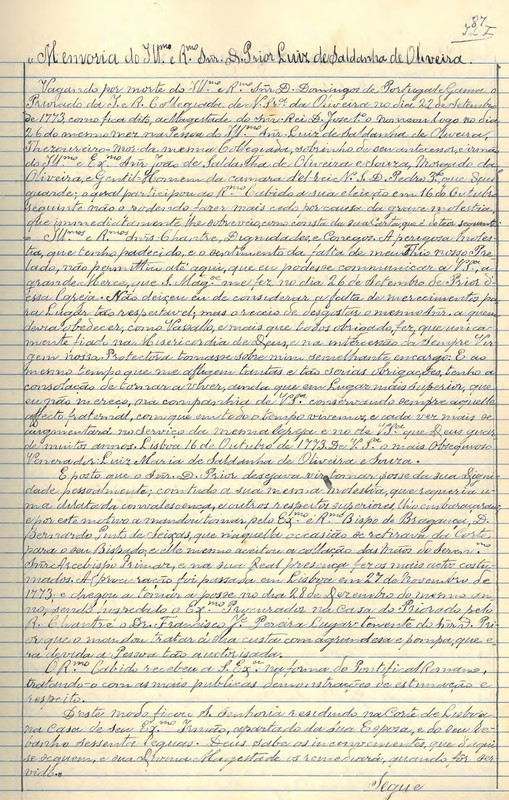 87
"Memoria do Ill.mo e R.mo Snr. D. Prior Luiz de Saldanha de Oliveira.
Vagando por morte do Ill.mo e R.mo Snr. D. Domingos de Portugal e Gama o
Priorado da I. e R. Collegiada de N. Sr.a da Oliveira no dia 22 de Setembro
de 1773, como fica dito, a Magestade do Snr. Rei D. José 1.o nomeou logo no dia
26 do mesmo mez na Pessoa do Ill.mo Snr. Luiz de Saldanha de Oliveira,
Thezoureiro-mór da mesma Collegiada, sobrinho de seu antecessor, e irmão
do Ill.mo Ex.mo Snr. João de Saldanha de Oliveira e Souza, Morgado da
Oliveira, e Gentil-Homem da camara del rei N. S. D. Pedro 3.o que Deus
guarde; a qual participou ao R.mo Cabido a sua eleição em 16 de Outubro
seguinte não o podendo fazer mais cedo por causa da grave molestia,
que immediatamente lhe sobreveio, como consta da sua Carta que é do teor seguinte
= Ill.mos e R.mos Snrs. Chantre, Dignidades, e Conegos. A perigosa moles-
tia, que tenho padecido, e o sentimento da falta de meu Thio nosso Pre-
lado, não permittiu até aqui, que eu podesse communicar a V. S.as, a
grande Merce, que S. Mag.e me fez no dia 26 de Setembro de Prior d'
essa Igreja. Não deixou eu de considerar a falta de merecimentos pa-
ra Lugar tão respeitavel, mas o receio de desgostar o mesmo Snr. a quem
devia obedecer, como Vassallo, e mais que todos obrigado, fez, que unica-
mente fiado na Misericordia de Deus, e na intercessão da Sempre Vir-
gem nossa Protectora tomasse sobre mim semelhante encargo. E ao
mesmo tempo que me affligem tantas e tão serias obrigações, tenho a
consolação de tornar a viver, ainda que em Lugar mais superior, que
eu não mereço, na companhia de V. S.as conservando sempre aquelle
affecto fraternal, com que em todo o tempo vivemos, e cada vez mais se
augmentará no Serviço da mesma Igreja e no de V. S.as que Deus guar-
de muitos annos. Lisboa 16 de Outubro de 1773. De V. S.as o mais Obsequioso
Venerador. Luiz Maria de Saldanha de Oliveira e Souza.
E posto que o Snr. D. Prior desejava vir tomar posse da sua Digni-
dade pessoalmente; comtudo a sua mesma molestia, que requeria u-
ma dilatada convalescença, e outros respeitos superiores, lh'o embaraçaram,
e por este motivo a mandou tomar, pelo Ex.mo e R.mo Bispo de Bragança, D.
Bernardo Pinto de Seixas, que naquella occasião se retirava da Corte
para o seu Bispado, e elle mesmo acceitou a collação das Mãos do Seren.mo
Snr. Arcebispo Primaz, e na sua Real presença fez os mais actos costu-
mados. A procuração foi passada em Lisboa em 2 de Novembro de
1773, e chegou a tomar a posse no dia 28 de Dezembro do mesmo an-
no, sendo hospedado o Ex.mo Procurador na Casa do Priorado pelo
R. Chantre o Dr. Francisco Pereira Lugar-tenente do Snr. D. Pri-
or que o mandou tratar á sua custa com a grandeza e pompa, que e-
ra devida a Pessoa tão auctorisada.
O R.mo Cabido recebeu a S. Ex.a na forma do Pontifical Romano,
tratando-o com as mais publicas demonstrações de estimação e
respeito.
Deste modo ficou S. Senhoria residindo na Corte de Lisboa
na Casa de seu Ex.mo Irmão, apartado da sua Esposa, e do seu Re-
banho sessenta leguas. Deus sabe os inconvenientes, que d'aqui
se seguem, e sua Divina Magestade os remediará, quando fôr ser-
vido.
Segue